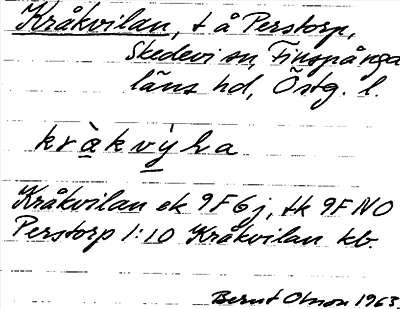 Kråkvilan, t å Perstorp,
Skedevi sn, Finspånga
läns hd, Östg. l.
kràkvỳla
Kråkvilan ek 9F6j, tk 9F NO
Perstorp 1:10 Kråkvilan kb.
Bernt Olsson 1963.